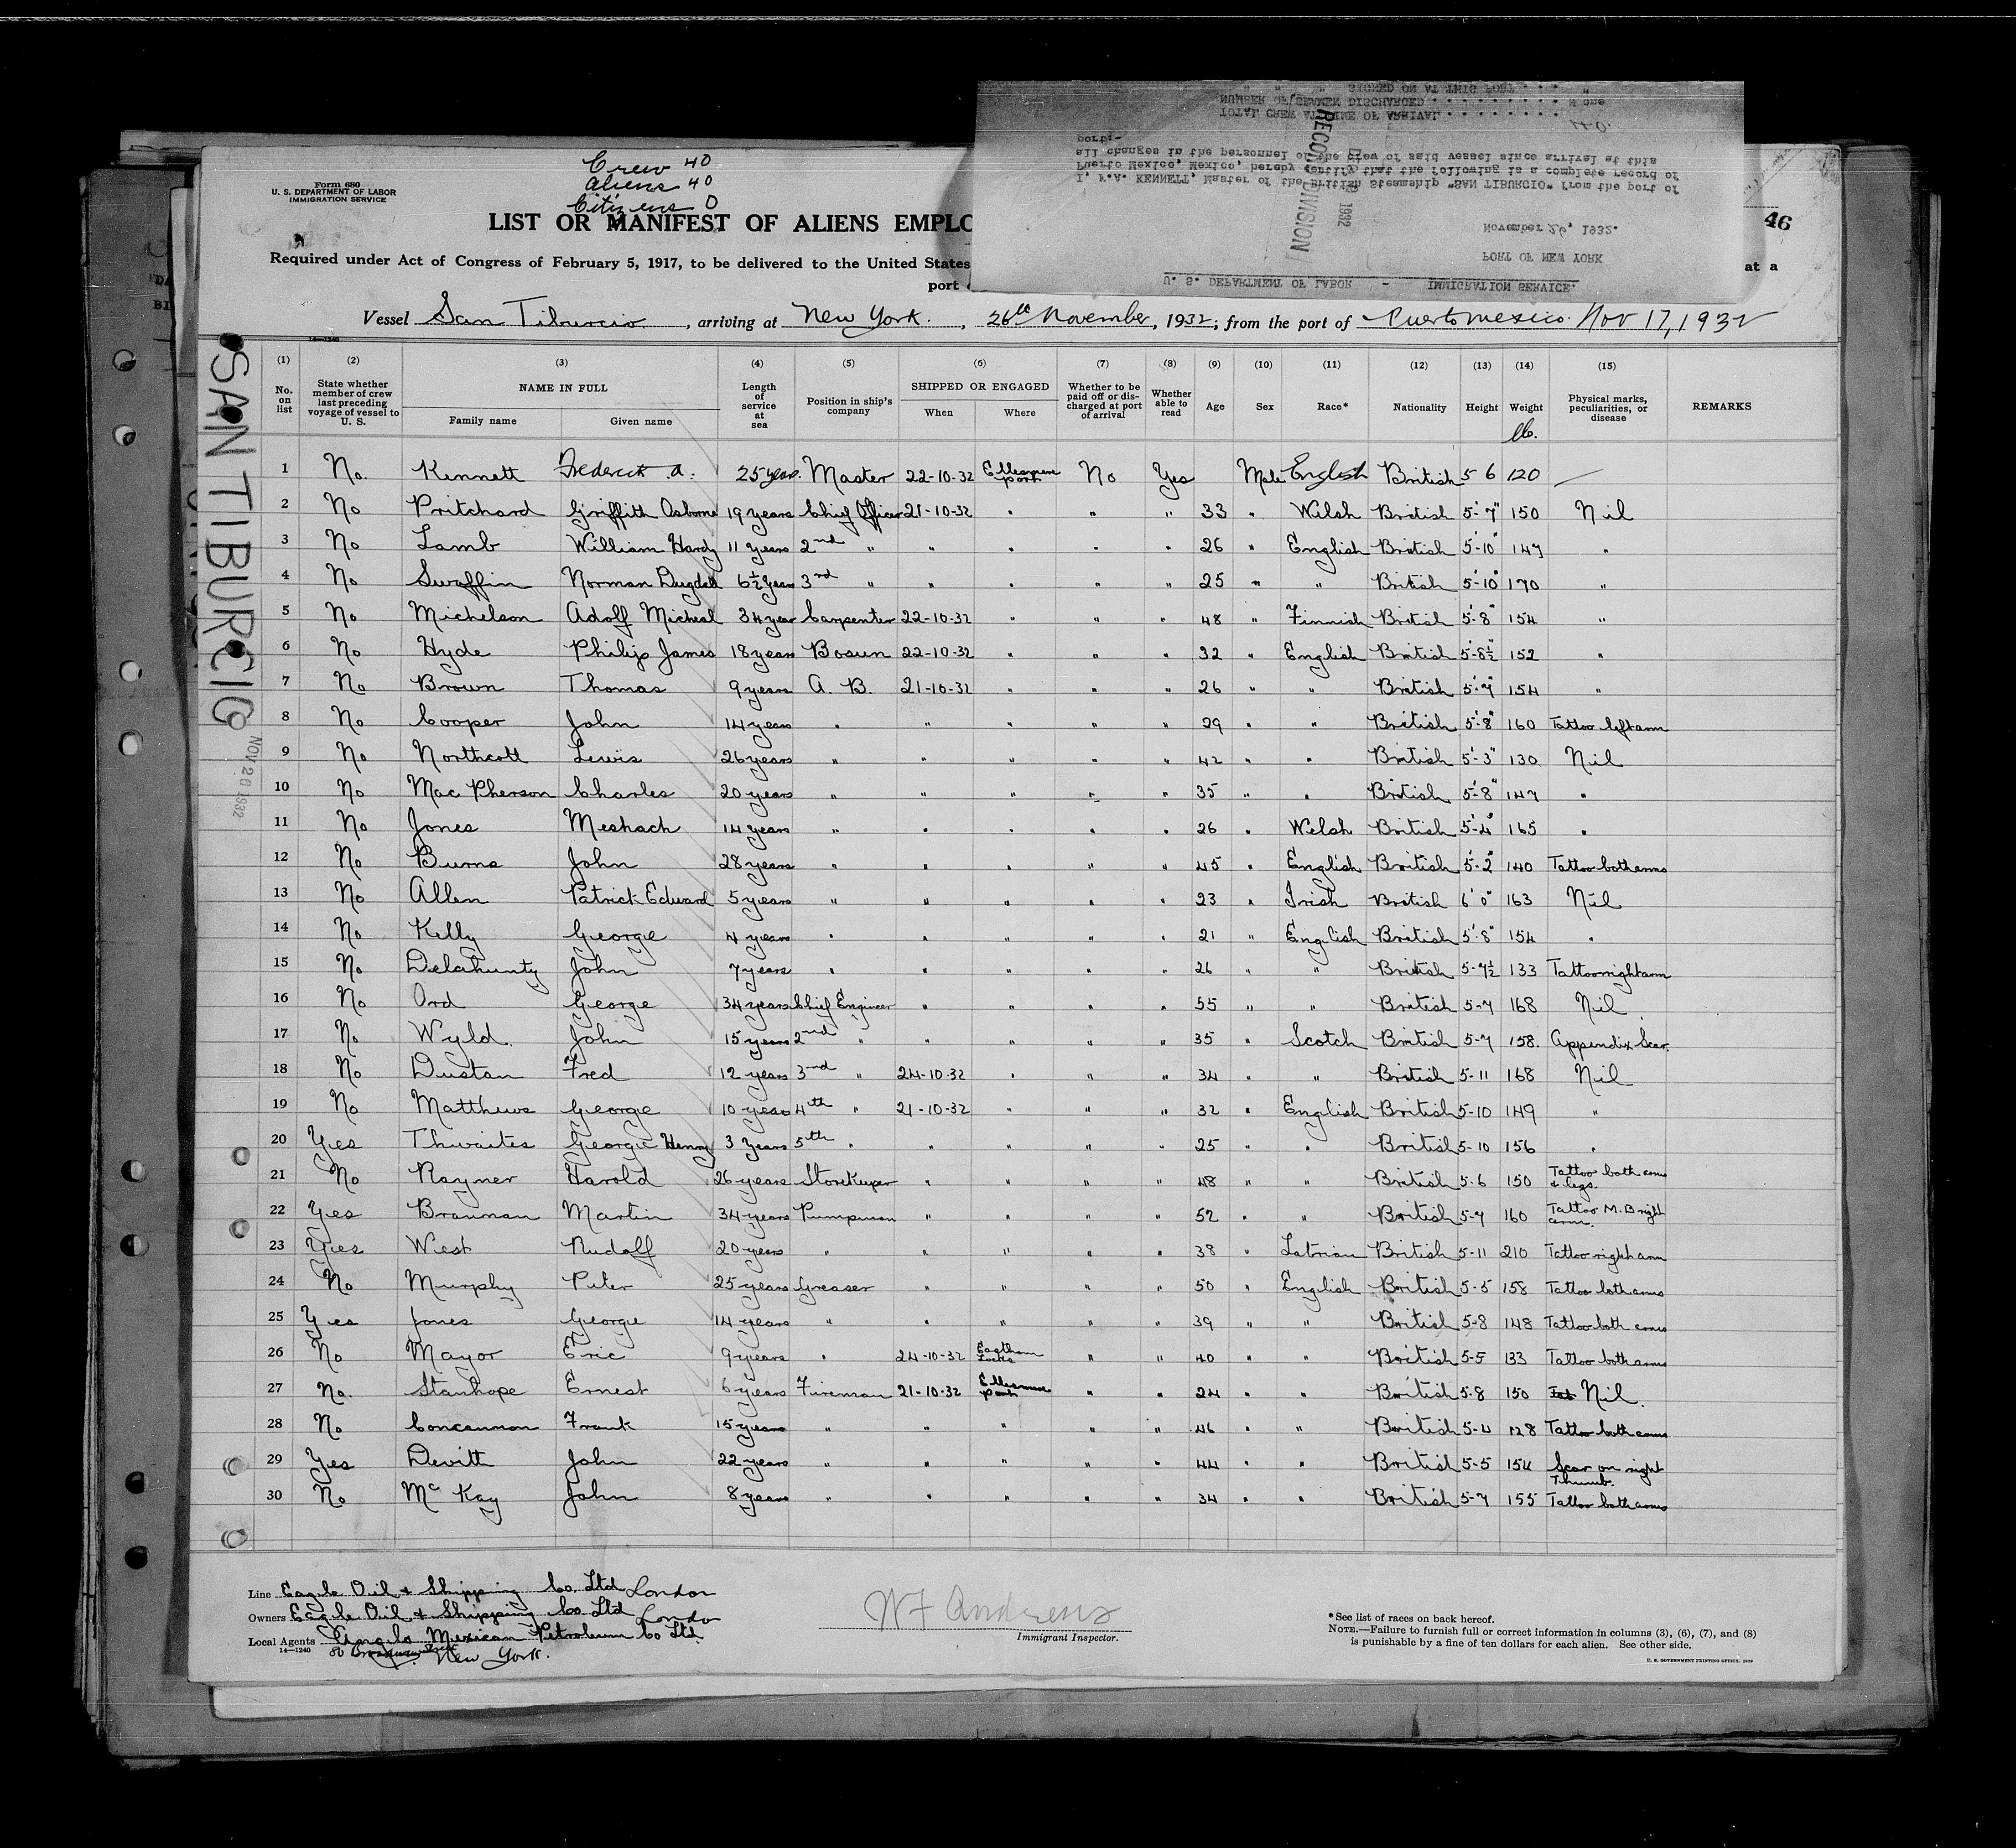 U. S. DEPARTMENT OF LABOR - IMMIGRATION SERVICE.
PORT OF NEW YORK
November 26, 1932.
I, F.A. KENNETT, Master of the British Steamship "SAN TIBURCIO" from the port of
Puerto Mexico, Mexico, hereby certify that the following is a complete record of
all changes in the personnel of the crew of said vessel since arrival at this
port:-
TOTAL CREW AT TIME OF ARRIVAL 40.
NUMBER OF SEAMEN DISCHARGED None
" " " SIGNED ON AT THIS PORT "
RECORD DIVISION
1932
Crew 40
Aliens 40
Citizens 0
Form 680
U. S. DEPARTMENT OF LABOR
IMMIGRATION SERVICE
46
LIST OR MANIFEST OF ALIENS EMPLO
Required under Act of Congress of February 5, 1917, to be delivered to the United States at a
port
Vessel San Tiburcio, arriving at New York., 26th November, 1932; from the port of Puerto Mexico. Nov 17, 1932
SAN TIBURCIO
NOV 26 1932
14—1240
(1) No. on list (2) State whether member of crew last preceding voyage of vessel to U. S. (3) NAME IN FULL Family name Given name (4) Length of service at sea (5) Position in ship's company (6) SHIPPED OR ENGAGED When Where (7) Whether to be paid off or discharged at port of arrival (8) Whether able to read (9) Age (10) Sex (11) Race* (12) Nationality (13) Height (14) Weight lb. (15) Physical marks, peculiarities, or disease REMARKS
1 No. Kennett Frederick A. 25 years. Master 22-10-32 Ellesmere Port No Yes Male English British 5 6 120 —
2 No Pritchard Griffith Osborne 19 years Chief Officer 21-10-32 " " " 33 " Welsh British 5'-7" 150 Nil
3 No Lamb William Hardy 11 years 2nd " " " " " 26 " English British 5'-10" 147 "
4 No Swaffin Norman Dugdall 6½ years 3rd " " " " " 25 " " British 5'-10" 170 "
5 No Michelson Adolf Micheal 34 year Carpenter 22-10-32 " " " 48 " Finnish British 5'-8" 154 "
6 No Hyde Philip James 18 years Bosun 22-10-32 " " " 32 " English British 5'-8½ 152 "
7 No Brown Thomas 9 years A. B. 21-10-32 " " " 26 " " British 5'-7" 154 "
8 No Cooper John 14 years " " " " " 29 " " British 5'-8" 160 Tattoo left arm
9 No Northcott Lewis 26 years " " " " " 42 " " British 5'-3" 130 Nil
10 No Mac Pherson Charles 20 years " " " " " 35 " " British 5'-8" 147 "
11 No Jones Meshach 14 years " " " " " 26 " Welsh British 5'-4" 165 "
12 No Burns John 28 years " " " " " 45 " English British 5'-2" 140 Tattoo both arms
13 No Allen Patrick Edward 5 years " " " " " 23 " Irish British 6'0" 163 Nil
14 No Kelly George 4 years " " " " " 21 " English British 5'-8" 154 "
15 No Delahunty John 7 years " " " " " 26 " " British 5-7½ 133 Tattoo right arm
16 No Ord George 34 years Chief Engineer " " " " 55 " " British 5-7 168 Nil.
17 No Wyld. John 15 years 2nd " " " " " 35 " Scotch British 5-7 158. Appendix Scar.
18 No Dustan Fred 12 years 3rd " 24-10-32 " " " 34 " " British 5-11 168 Nil
19 No Matthews George 10 years 4th " 21-10-32 " " " 32 " English British 5-10 149 "
20 Yes Thwaites George Henry 3 years 5th " " " " " 25 " " British 5-10 156 "
21 No Rayner Harold 26 years Storekeeper " " " " 48 " " British 5-6 150 Tattoo both arms & legs.
22 Yes Brannan Martin 34 years Pumpman " " " " 52 " " British 5-7 160 Tattoo M.B right arm.
23 Yes Wiest Rudolf 20 years " " " " " 38 " Latvian British 5-11 210 Tattoo right arm
24 No Murphy Peter 25 years Greaser " " " " 50 " English British 5-5 158 Tattoo both arms
25 Yes Jones George 14 years " " " " " 39 " " British 5-8 148 Tattoo both arms
26 No Mayor Eric 9 years " 24-10-32 Eastham Locks " " 40 " " British 5-5 133 Tattoo both arms
27 No. Stanhope Ernest 6 years Fireman 21-10-32 Ellesmere Port " " 24 " " British 5-8 150 Nil.
28 No Concannon Frank 15 years " " " " " 46 " " British 5-4 128 Tattoo both arms
29 Yes Devitt John 22 years " " " " " 44 " " British 5-5 154 Scar on right Thumb.
30 No McKay John 8 years " " " " " 34 " " British 5-7 155 Tattoo both arms
Line Eagle Oil & Shipping Co. Ltd London
Owners Eagle Oil & Shipping Co Ltd London
Local Agents Anglo Mexican Petroleum Co Ltd.
14—1240 80 Broad Street New York.
W F Andrews
Immigrant Inspector.
*See list of races on back hereof.
NOTE.—Failure to furnish full or correct information in columns (3), (6), (7), and (8)
is punishable by a fine of ten dollars for each alien. See other side.
U. S. GOVERNMENT PRINTING OFFICE: 1929